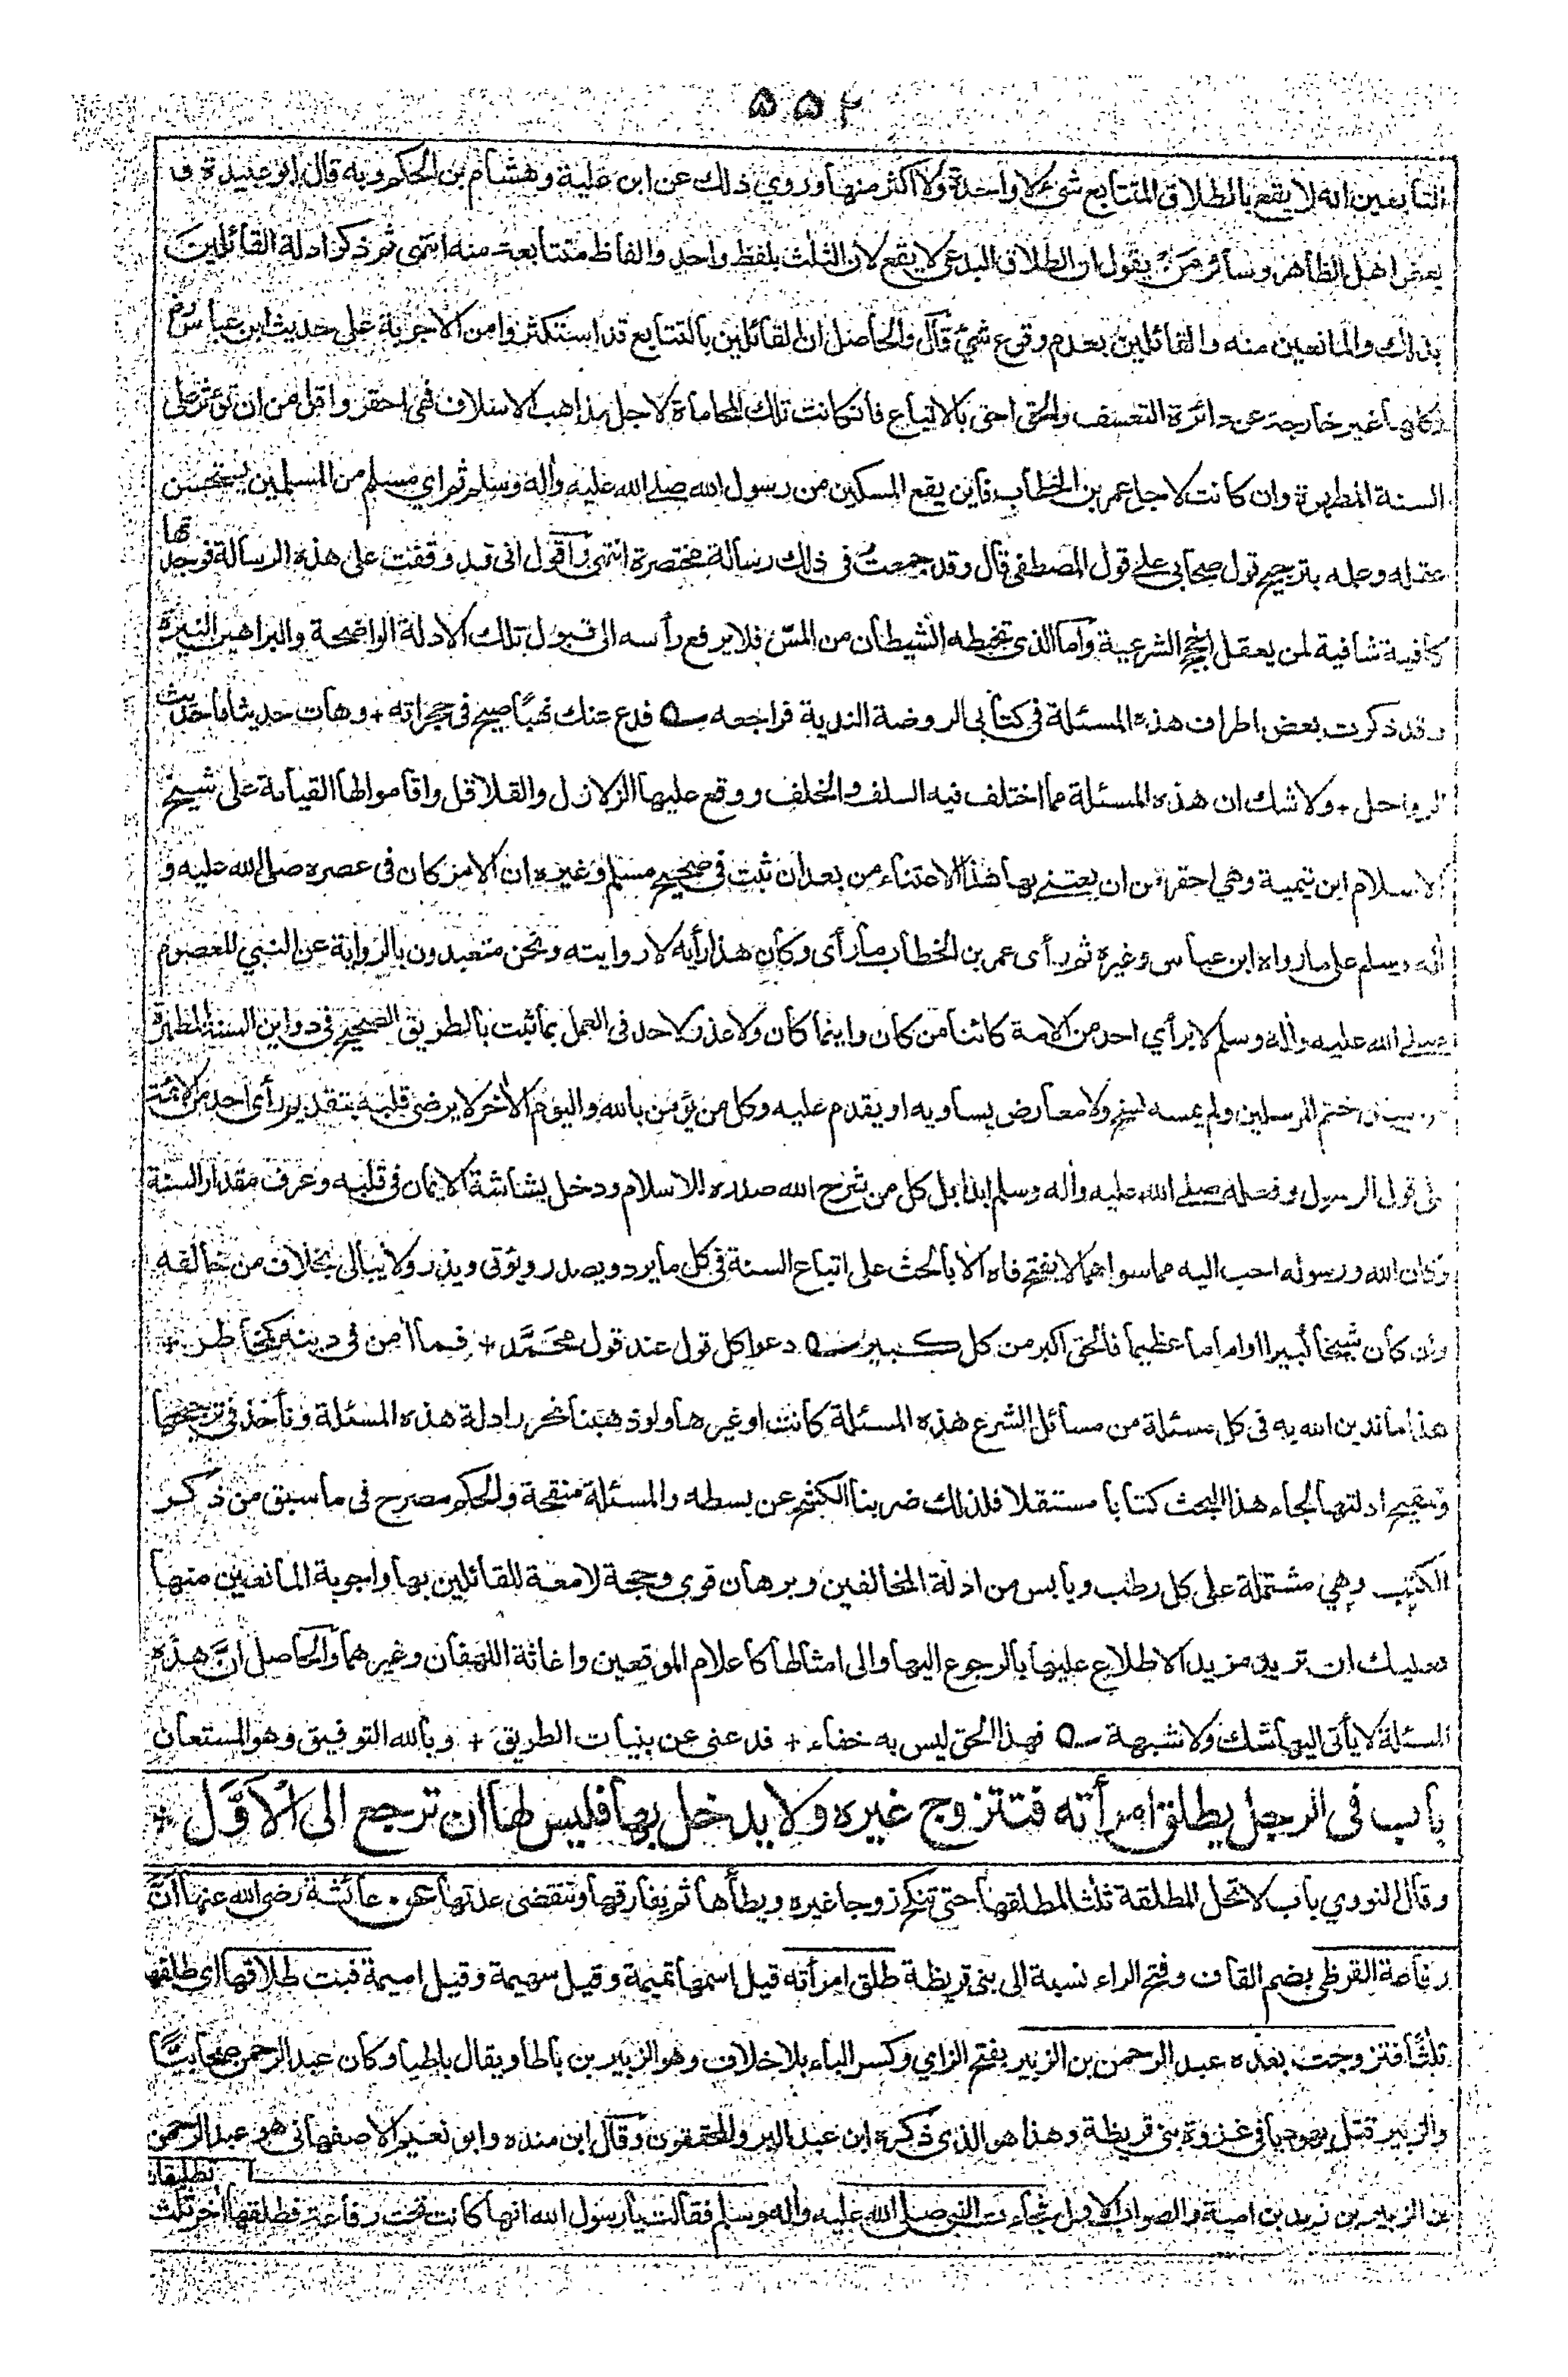 ٥٥٢
التابعين انه لا يقع بالطلاق المتتابع شئ لا واحدة ولا اكثر منها وروي ذلك عن ابن علية وهشام بن الحكم وبه قال ابو عبيدة و
بعض اهل الظاهر وسائر من يقول ان الطلاق البدعي لا يقع لان الثلث بلفظ واحد والفاظ متتابعة منه انتهى ثم ذكر ادلة القائلين
بذلك والمانعين منه والقائلين بعدم وقوع شئ قال والحاصل ان القائلين بالتتابع قد استكثروا من الاجوبة على حديث ابن عباس رض
وكلها غير خارجة عن دائرة التعسف والحق احق بالاتباع فان كانت تلك المحاماة لاجل مذاهب الاسلاف فهي احقر واقل من ان تؤثر على
السنة المطهرة وان كانت لاجل عمر بن الخطاب فاين يقع المسكين من رسول الله صلى الله عليه وأله وسلم ثم اي مسلم من المسلمين يستحسن
عقله وعلمه بترجيح قول صحابي على قول المصطفى قال وقد جمعت في ذلك رسالة مختصرة انتهى واقول اني قد وقفت على هذه الرسالة فوجدتها
كافية شافية لمن يعقل الحجج الشرعية واما الذي تخبطه الشيطان من المس فلا يرفع رأسه الى قبول تلك الادلة الواضحة والبراهين النيرة
وقد ذكرت بعض اطراف هذه المسئلة في كتابي الروضة الندية فراجعه ه فدع عنك نهبًا صيح في حجراته + وهات حديثا ما حديث
الرواحل + ولا شك ان هذه المسئلة مما اختلف فيه السلف والخلف ووقع عليها الزلازل والقلاقل واقاموا لها القيامة على شيخ
الاسلام ابن تيمية وهي احقر من ان يعتنى بها هذا الاعتناء من بعد ان ثبت في صحيح مسلم وغيره ان الامر كان في عصره صلى الله عليه و
أله وسلم على ما رواه ابن عباس وغيره ثم رأى عمر بن الخطاب ما رأى وكان هذا رأيه لا روايته ونحن متعبدون بالرواية عن النبي المعصوم
صلى الله عليه وأله وسلم لا برأي احد من الامة كائنا من كان واينما كان ولا عذر لاحد في العمل بما ثبت بالطريق الصحيح في دواوين السنة المطهرة
ختم المرسلين ولم يمسه نسخ ولا معارض يساويه او يقدم عليه وكل من يؤمن بالله واليوم الأخر لا يرضى قلبه بتقديم رأى احد من الائمة
على قول الرسول وفعله صلى الله عليه وأله وسلم ابدا بل كل من شرح الله صدره للاسلام ودخل بشاشة الايمان في قلبه وعرف مقدار السنة
وكان الله ورسوله احب اليه مما سواهما لا يفتح فاه الا بالحث على اتباع السنة في كل ما يرد ويصدر ويؤتى ويذر ولا يبالي بخلاف من خالفه
وان كان شيخا كبيرا او اماما عظيما فالحق اكبر من كل كبير ه دعوا كل قول عند قول محمَّد + فما أمن في دينه كمخاطر +
هذا ما ندين الله به في كل مسئلة من مسائل الشرع هذه المسئلة كانت او غيرها ولو ذهبنا نحرر ادلة هذه المسئلة ونأخذ في ترجيحها
وتنقيح ادلتها لجاء هذا البحث كتابا مستقلا فلذلك ضربنا الكشح عن بسطه والمسئلة منقحة والحكم مصرح في ما سبق من ذكر
الكتب وهي مشتملة على كل رطب ويابس من ادلة المخالفين وبرهان قوي وحجة لامعة للقائلين بها واجوبة المانعين منها
فعليك ان تريد مزيد الاطلاع عليها بالرجوع اليها والى امثالها كاعلام الموقعين واغاثة اللهفان وغيرهما والحاصل انَّ هذه
المسئلة لا يأتي اليها شك ولا شبهة ه فهذا الحق ليس به خفاء + فدعني عن بنيات الطريق + وبالله التوفيق وهو المستعان
باب في الرجل يطلق امرأته فتتزوج غيره ولا يدخل بها فليس لها ان ترجع الى الاَوَّل +
وقال النووي باب لا تحل المطلقة ثلثا لمطلقها حتى تنكح زوجا غيره ويطأها ثم يفارقها وتنقضي عدتها عن عائشة رضي الله عنها انَّ
رفاعة القرظي بضم القاف وفتح الراء نسبة الى بني قريظة طلق امرأته قيل اسمها تميمة وقيل سهيمة وقيل اميمة فبت طلاقها اي طلقها
ثلثًا فتزوجت بعده عبد الرحمن بن الزبير بفتح الزاي وكسر الباء بلا خلاف وهو الزبير بن باطا ويقال باطيا وكان عبد الرحمن صحابيًّا
والزبير قتل يهوديا في غزوة بني قريظة وهذا هو الذي ذكره ابن عبد البر والمحققون وقال ابن منده وابو نعيم الاصفهاني هو عبد الرحمن
بن الزبير بن زيد بن امية والصواب الاول فجاءت النبي صلى الله عليه وأله وسلم فقالت يا رسول الله انها كانت تحت رفاعة فطلقها أخر ثلث تطليقات